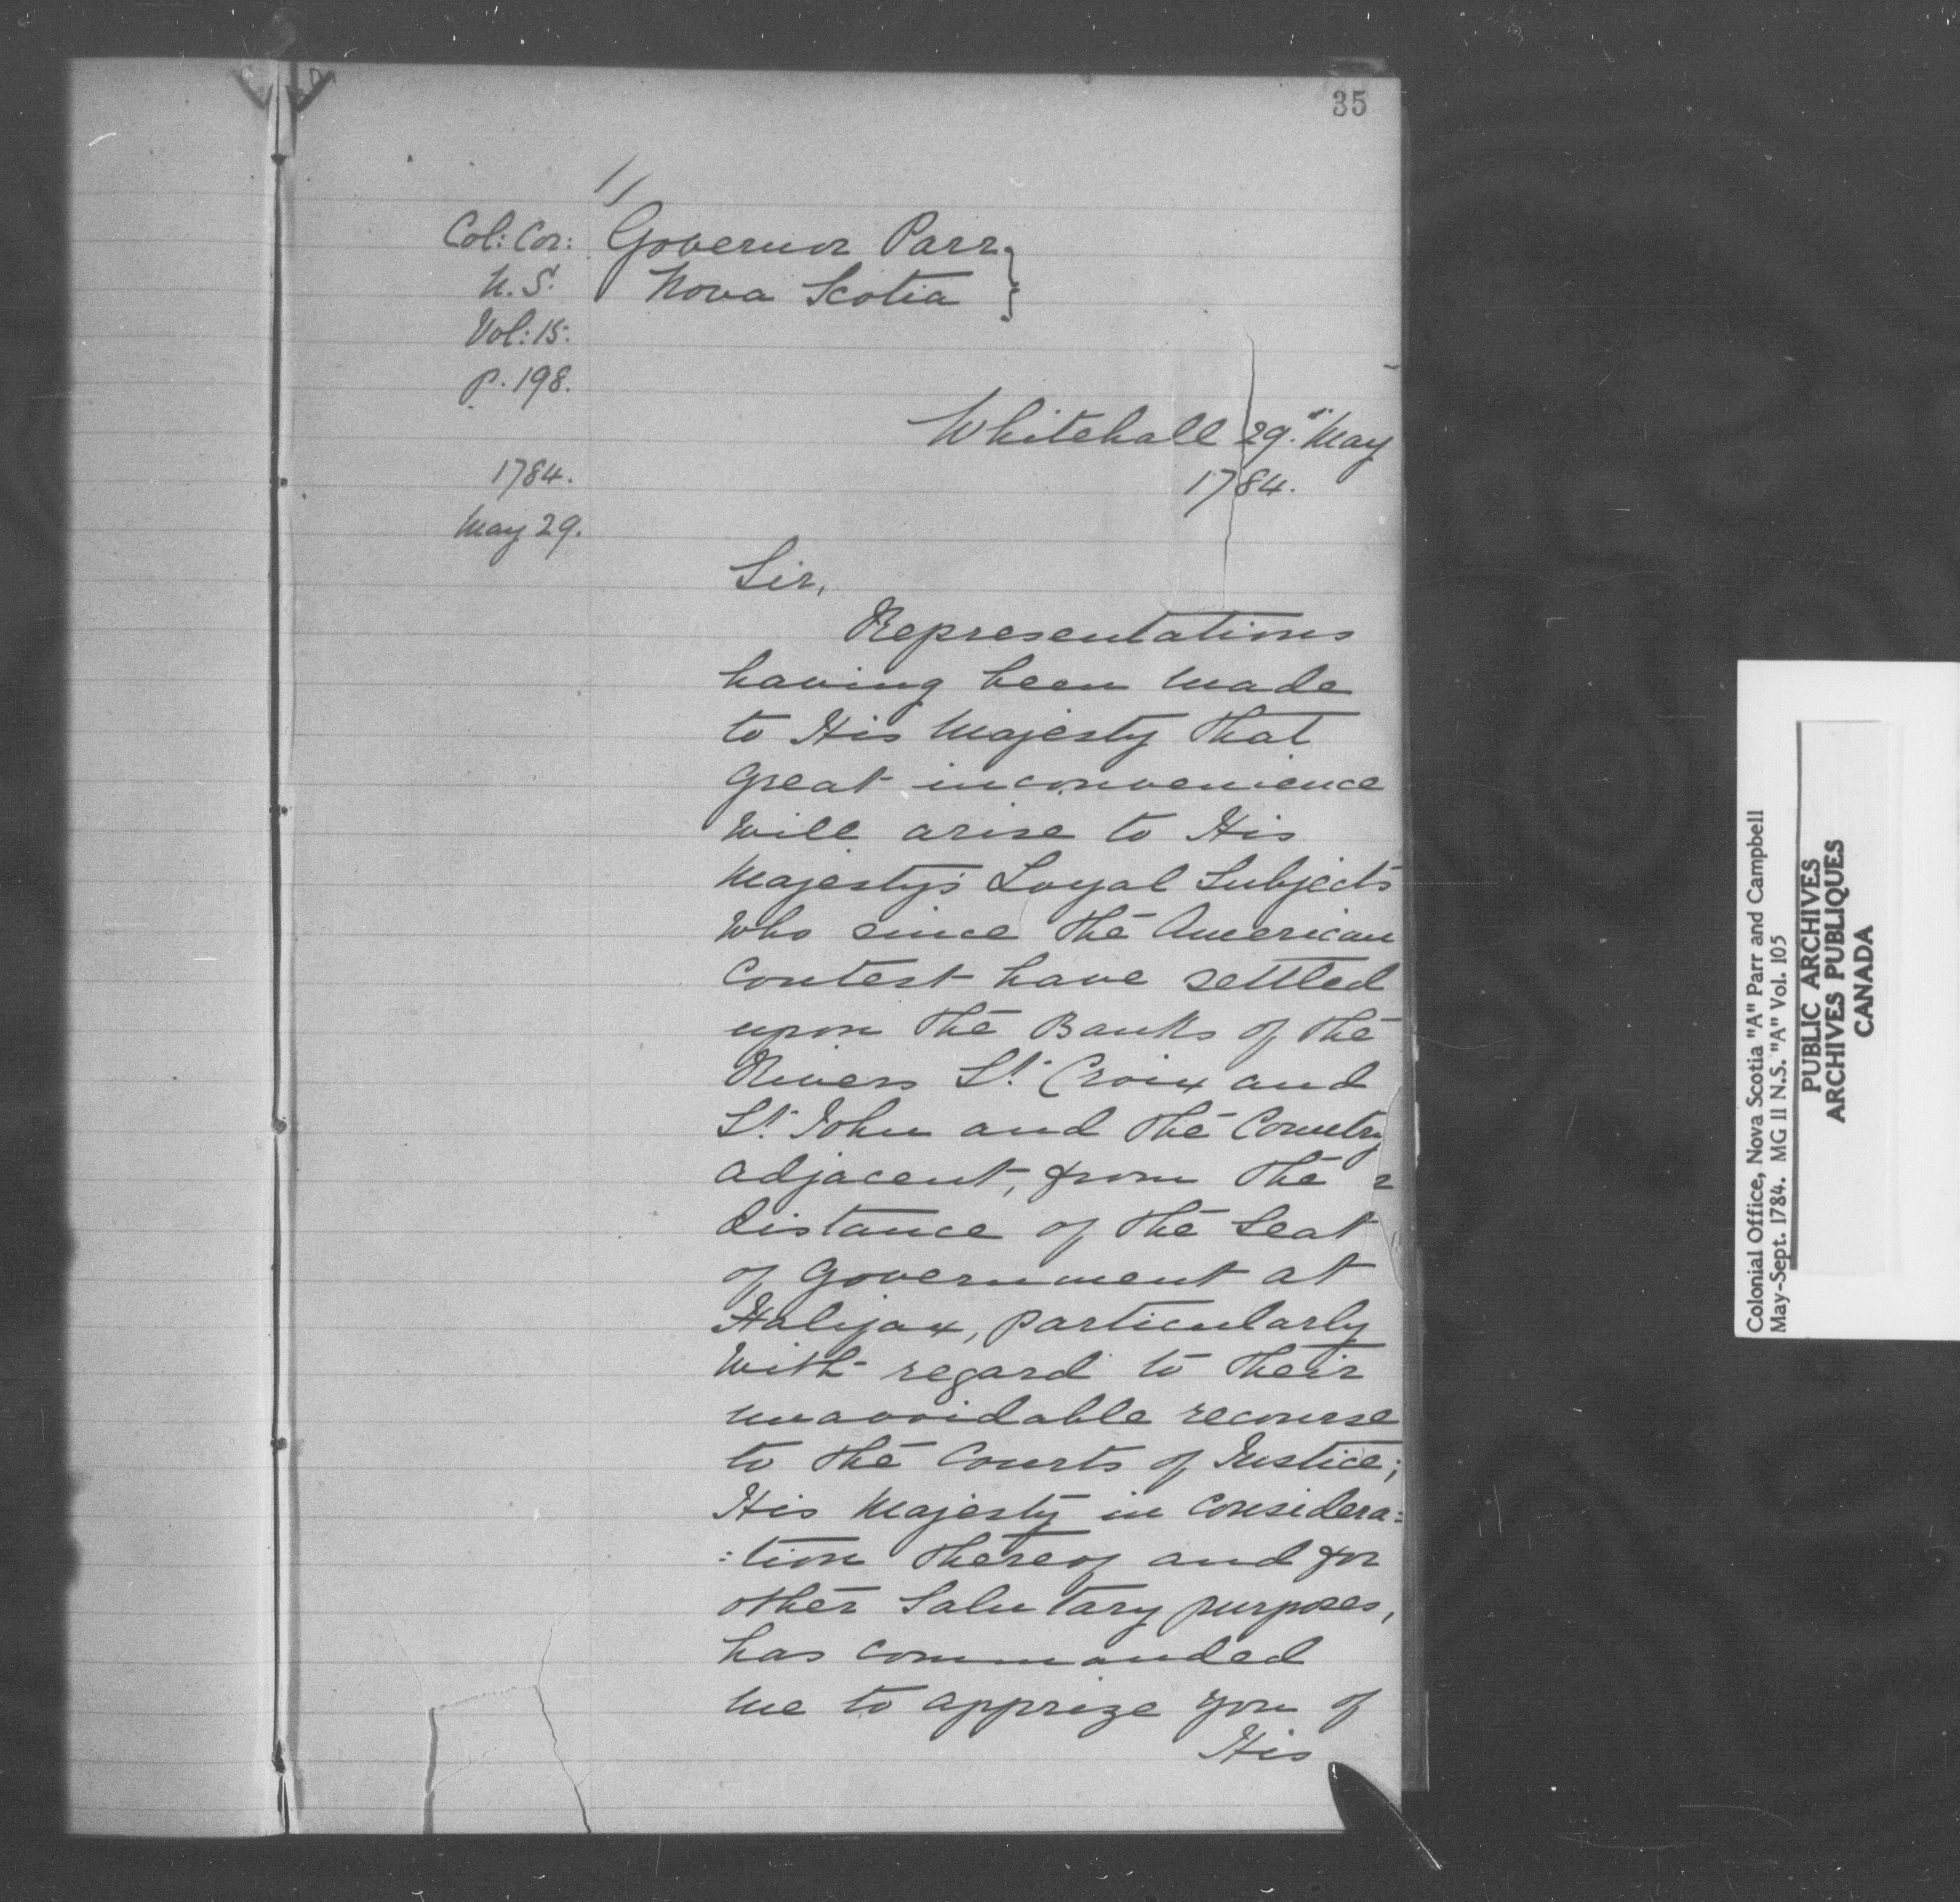 35
Col: Cor:
N.S.
Vol: 15:
p. 198.
1784.
May 29.
Governor Parr
Nova Scotia
Whitehall 29th May
1784.
Sir,
Representations
having been made
to His Majesty that
great inconvenience
will arise to His
Majesty's Loyal Subjects
who since the American
Contest have settled
upon the Banks of the
Rivers St. Croix and
St. John and the Country
adjacent, from the
distance of the Seat
of Government at
Halifax, particularly
with regard to their
unavoidable recourse
to the Courts of Justice;
His Majesty in considera:
:tion thereof and for
other salutary purposes,
has commanded
me to apprize you of
His
Colonial Office, Nova Scotia "A" Parr and Campbell
May-Sept. 1784. MG 11 N.S. "A" Vol. 105
PUBLIC ARCHIVES
ARCHIVES PUBLIQUES
CANADA